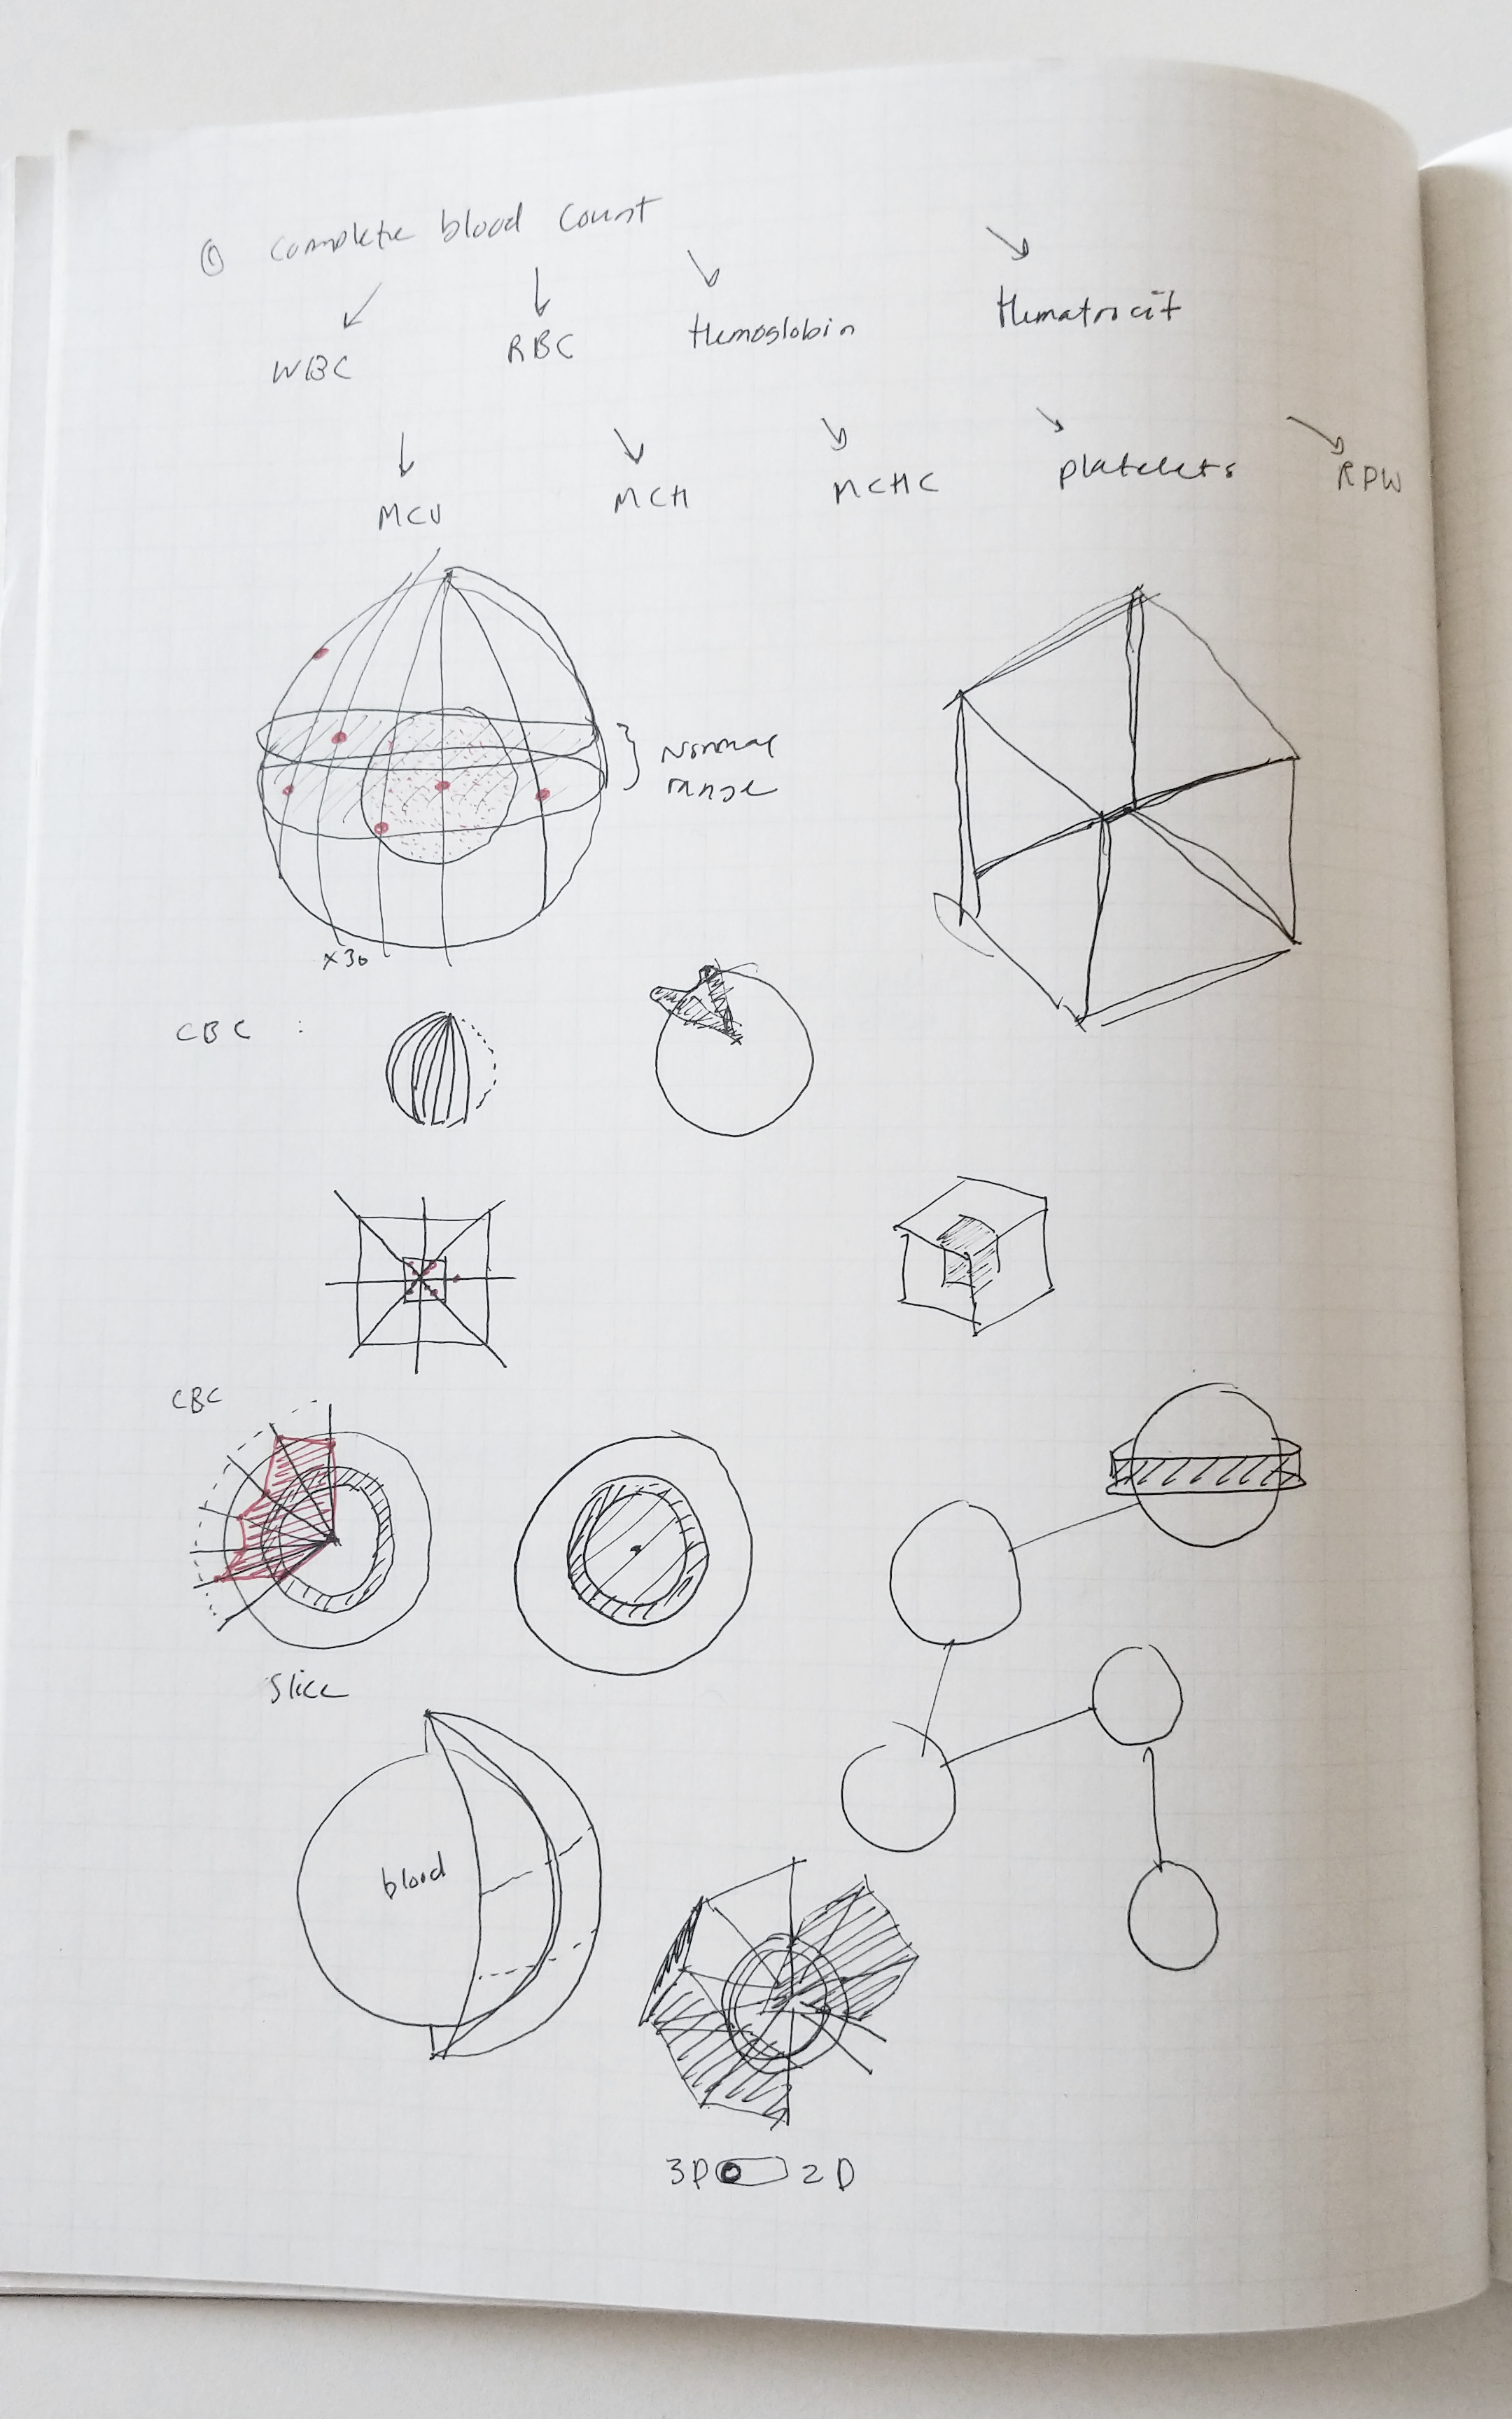 ① Complete blood count
WBC RBC Hemoglobin Hematrocit
MCV MCH MCHC platelets RDW
Normal
range
x30
CBC :
CBC
Slice
blood
3D 2D